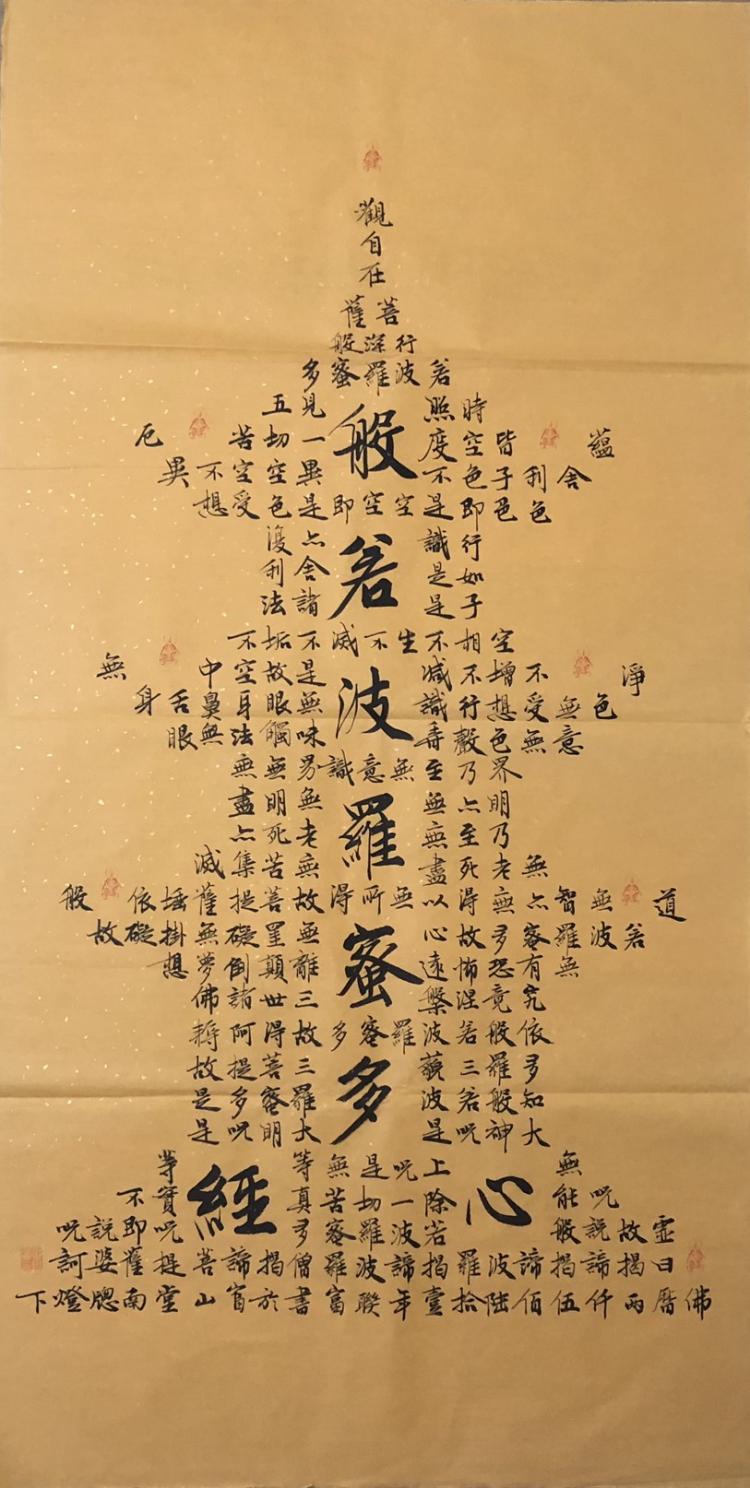 觀
自
在
菩薩
行深般
若波羅蜜多
時照見五
蘊皆空度一切苦厄
舍利子色不異空空不異
色色即是空空即是色受想
行識亦復
如是舍利
子是諸法
空相不生不滅不垢不
淨不增不減是故空中無
色無受想行識無眼耳鼻舌身
意無色聲香味觸法無眼
界乃至無意識界無無
明亦無無明盡
乃至無老死亦
無老死盡無苦集滅
道無智亦無得以無所得故菩提薩埵依般
若波羅蜜多故心無罣礙無掛礙故
無有恐怖遠離顛倒夢想
究竟涅槃三世諸佛
依般若波羅蜜多故得阿耨
多羅三藐三菩提故
知般若波羅蜜多是
大神咒是大明咒是
無上咒是無等等
咒能除一切苦真實不
虛故說般若波羅蜜多咒即說咒
曰揭諦揭諦波羅揭諦波羅僧揭諦菩提薩婆訶
佛曆兩仟伍佰陸拾壹年聯富書於窅山堂南牕燈下
般若波羅蜜多心經